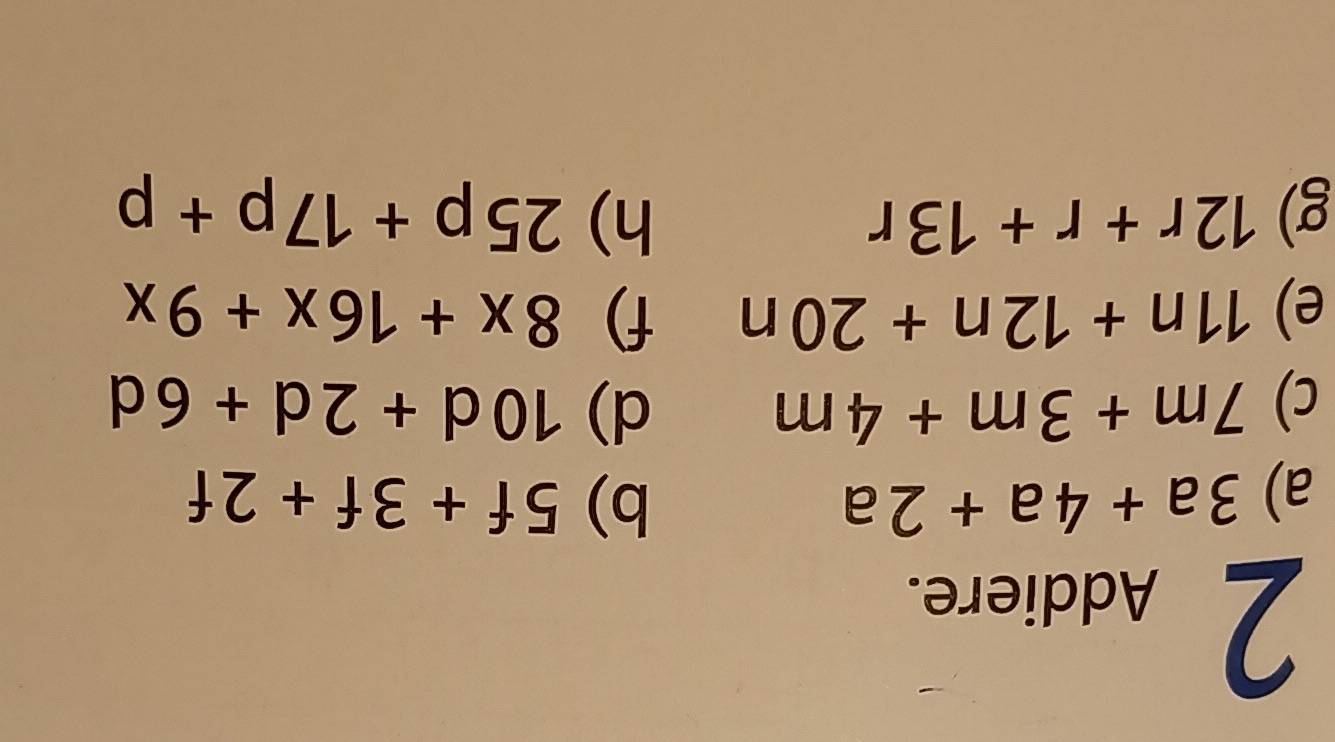 2 Addiere.
a) 3a + 4a + 2a b) 5f + 3f + 2f
c) 7m + 3m + 4m d) 10d + 2d + 6d
e) 11n + 12n + 20n f) 8x + 16x + 9x
g) 12r + r + 13r h) 25p + 17p + p